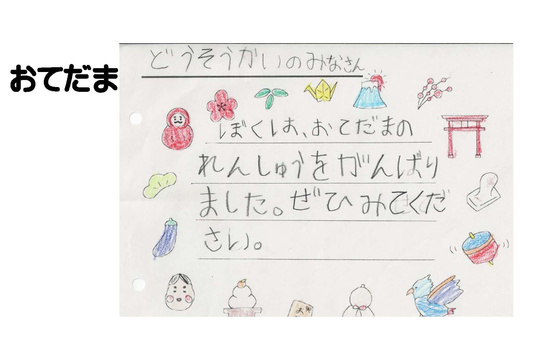 おてだま
どうそうかいのみなさん
ぼくは、おてだまの
れんしゅうをがんばり
ました。ぜひみてくだ
さい。